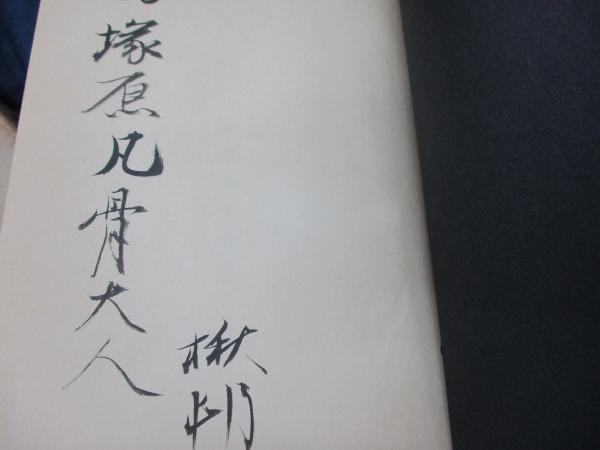 塚原凡骨大人
楸邨